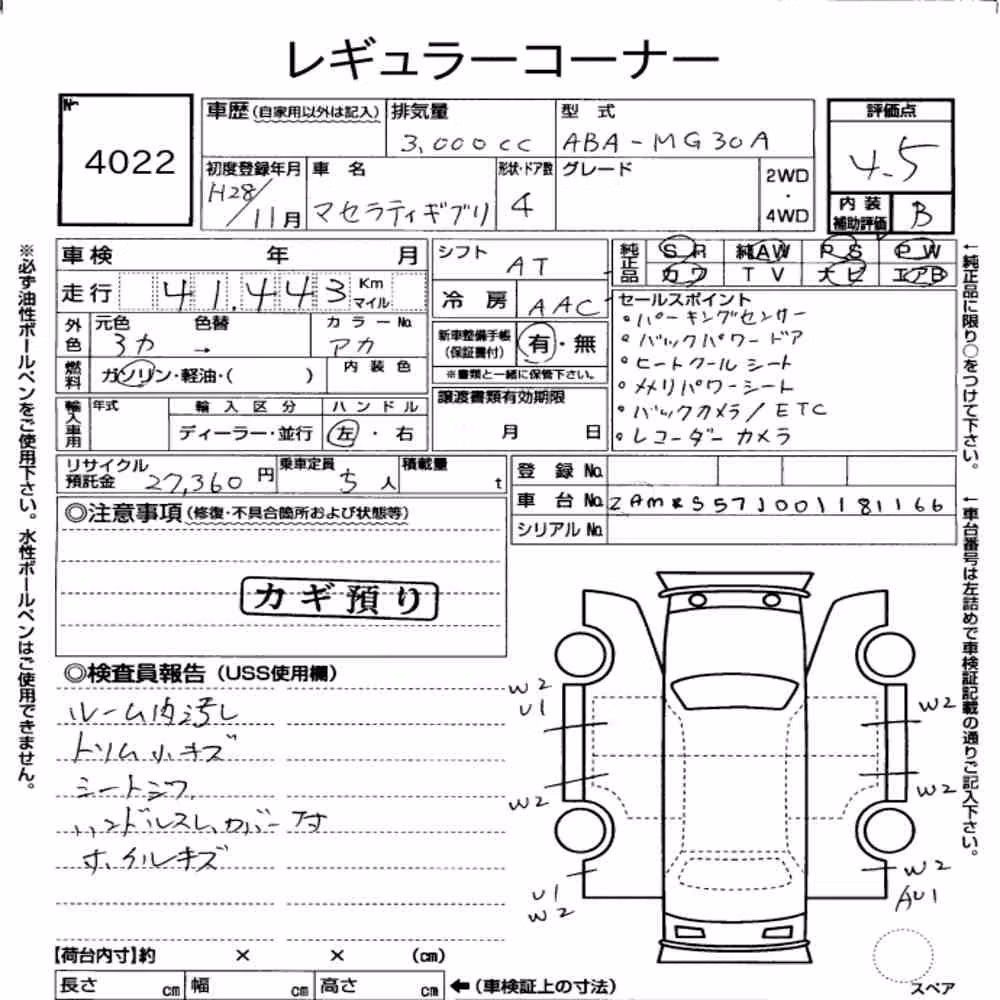 レギュラーコーナー
№
4022
車歴(自家用以外は記入)
排気量
3,000cc
型式
ABA-MG30A
評価点
4.5
初度登録年月
H28/11月
車名
マセラティギブリ
形状・ドア数
4
グレード
2WD
・
4WD
内装
補助評価
B
車検 年 月
走行 41.443 Km
マイル
外色
元色 色替
3カ →
カラーNo.
アカ
燃料
ガソリン・軽油・( )
内装色
輸入車用
年式
輸入区分
ディーラー・並行
ハンドル
左・右
シフト
AT
冷房
AAC
新車整備手帳
(保証書付)
有・無
※書類と一緒に保管下さい。
譲渡書類有効期限
月 日
純正品
SR 純AW PS PW
カワ TV ナビ エアB
セールスポイント
・パーキングセンサー
・バックパワードア
・ヒートクールシート
・メメリパワーシート
・バックカメラ/ETC
・レコーダーカメラ
リサイクル
預託金 27,360円
乗車定員
5人
積載量
t
登録No.
車台No. ZAMRS57J001181166
シリアルNo.
◎注意事項(修復・不具合箇所および状態等)
カギ預り
◎検査員報告(USS使用欄)
ルーム内汚し
トリム小キズ
シートシワ
ハンドルスレ,カバー付
ホイルキズ
W2
U1
W2
U1
W2
W2
W2
W2
AU1
スペア
【荷台内寸】約 × × (cm)
長さ cm 幅 cm 高さ cm ←(車検証上の寸法)
※必ず油性ボールペンをご使用下さい。水性ボールペンはご使用できません。
←純正品に限り○をつけて下さい。
←車台番号は左詰めで車検証記載の通りご記入下さい。